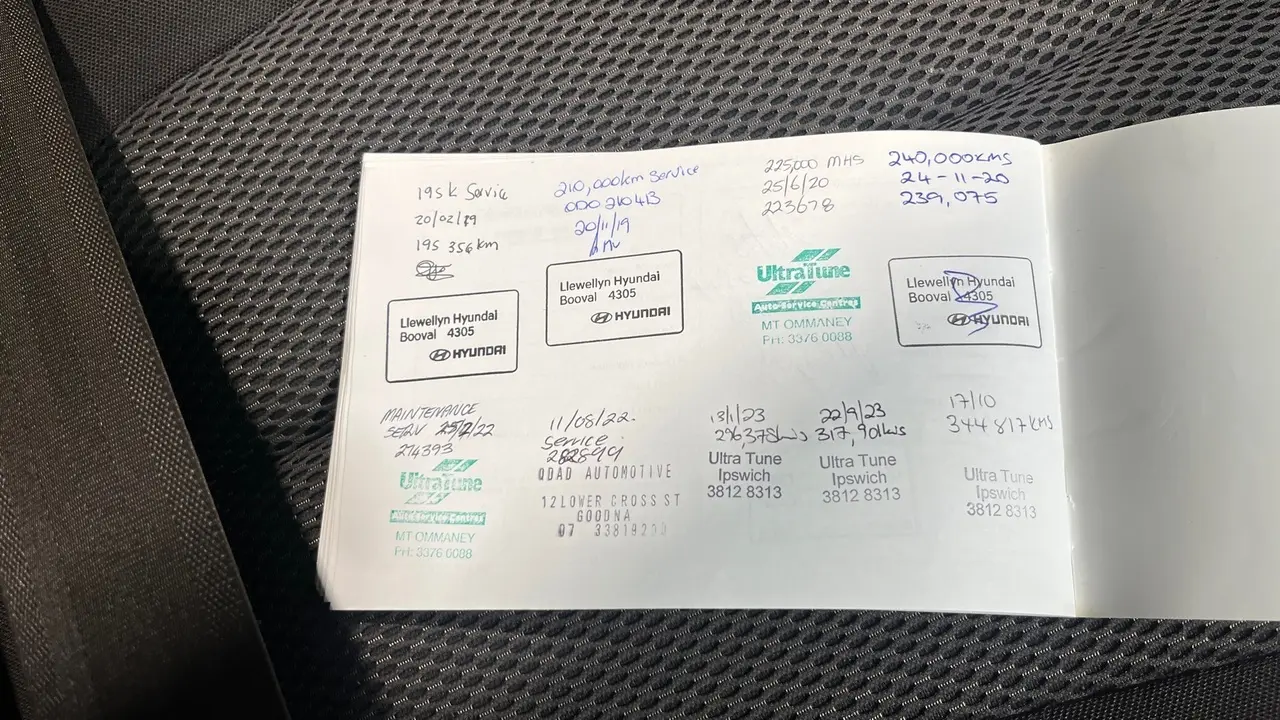 195K Service
20/02/19
195 356km
Llewellyn Hyundai
Booval 4305
HYUNDAI
210,000km Service
ODO 210413
20/11/19
Llewellyn Hyundai
Booval 4305
HYUNDAI
225,000 MHS
25/6/20
223678
UltraTune
Auto Service Centres
MT OMMANEY
PH: 3376 0088
240,000KMS
24-11-20
239,075
Llewellyn Hyundai
Booval 4305
HYUNDAI
MAINTENANCE
274393
UltraTune
Auto Service Centres
MT OMMANEY
PH: 3376 0088
11/08/22.
Service
282899
QDAD AUTOMOTIVE
12 LOWER CROSS ST
GOODNA
07
13/1/23
296,378kms
Ultra Tune
Ipswich
3812 8313
22/9/23
317,901kms
Ultra Tune
Ipswich
3812 8313
17/10
344817KMS
Ultra Tune
Ipswich
3812 8313